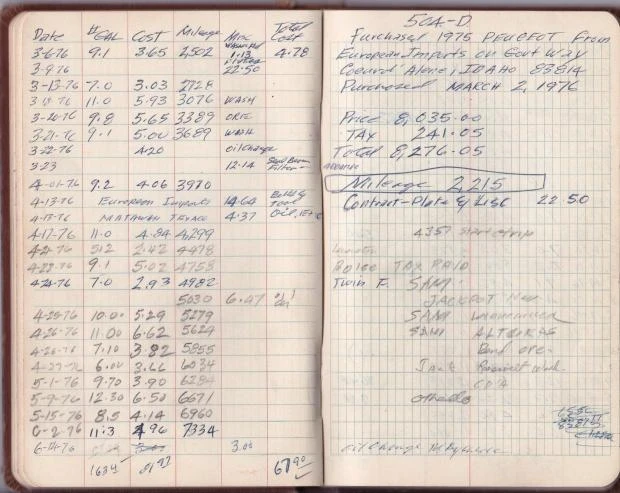 Date #GAL Cost Mileage Misc Total Cost
3-6-76 9.1 3.65 2,502 1.13 4.78
3-9-76 22.50
3-13-76 7.0 3.03 2728
3-18-76 11.0 5.93 3076 WASH
3-20-76 9.8 5.65 3389 ORIE
3-21-76 9.1 5.00 3689 WASH
3-22-76 4.20 oil change
3-23 12.14 Seal Beam Filter
4-01-76 9.2 4.06 3970
4-13-76 European Imports 14.64 Tool
4-13-76 TEXACO 4.37 Oil,
4-17-76 11.0 4.84 4,299
4-21-76 5.2 2.42 4478
4-22-76 9.1 5.02 4758
4-24-76 7.0 2.93 4982
5030 6.47 oil
4-25-76 10.00 5.29 5279
4-26-76 11.00 6.62 5624
4-26-76 7.10 3.82 5855
4-27-76 6.00 3.66 6034
5-1-76 9.70 3.90 6284
5-9-76 12.30 6.50 6671
5-15-76 8.5 4.14 6960
6-2-76 11.3 4.96 7334
6-14-76 3.00
67.90
504-D
Purchased 1975 PEUGEOT From
European Imports on Govt Way
Coeurd'Alene, IDAHO 83814
Purchased MARCH 2, 1976
Price 8,035.00
TAX 241.05
Total 8,276.05
Mileage 2,215
Contract-Plate & Lisc 22.50
4357 start of trip
Boise TAX PAID
Twin F. SAM
JACKPOT Nev
SAM Winnemucca
SAM ALTURAS
Bend Ore.
Jack Roosevelt Wash.
CD'A
Othello
oil change